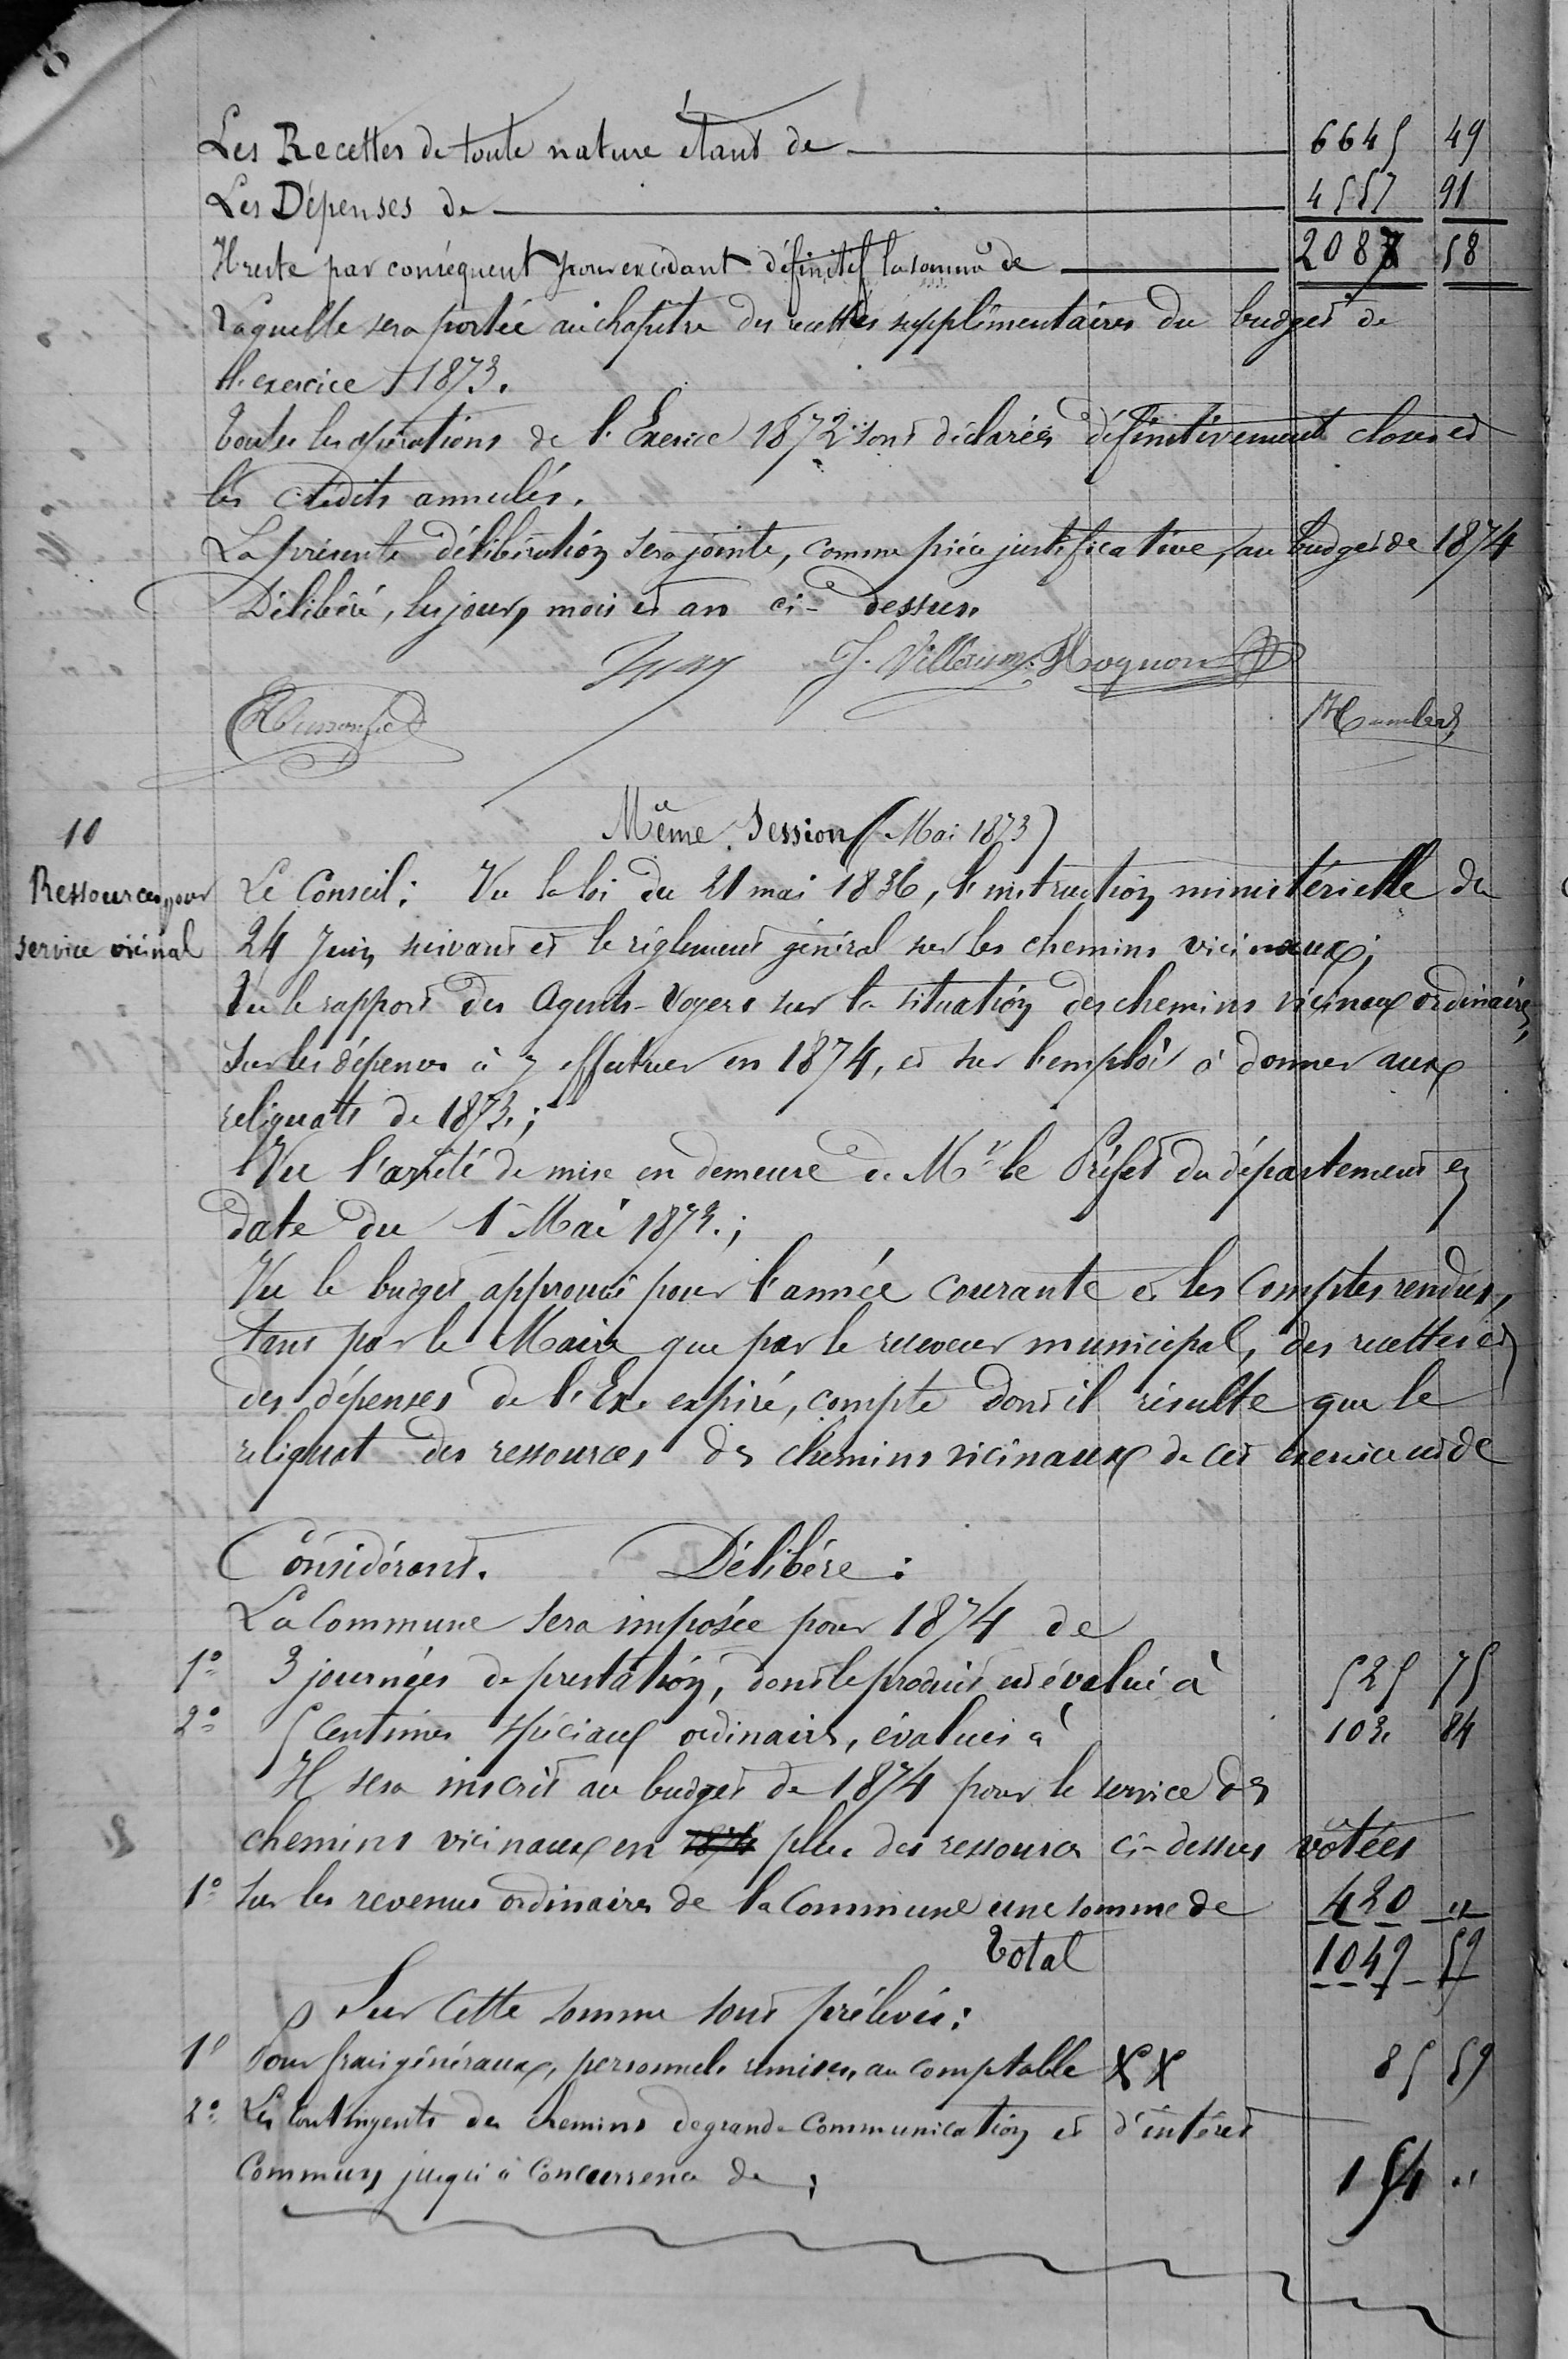 8
Les Recettes de toute nature étant de 6645 49
Les Dépenses de 4557 91
Il reste par conséquent pour excédant définitif la somme de 2087 58
Laquelle sera portée au chapitre des recettes supplémentaires du budget de
l'exercice 1873.
Toutes les opérations de l'Exercice 1872 sont déclarées définitivement closes et
les crédits annulés.
La présente délibération sera jointe, comme pièce justificative, au budget de 1874
Délibéré, les jour, mois et an ci-dessus.
J. Villaumé Hognon
Humbert
Même Session (Mai 1873)
10
Ressources pour
service vicinal
Le Conseil: Vu la loi du 21 mai 1836, l'instruction ministérielle du
24 Juin suivant et le règlement général sur les chemins vicinaux;
Vu le rapport des Agents-Voyers sur la situation des chemins vicinaux ordinaires,
sur les dépenses à y effectuer en 1874, et sur l'emploi à donner aux
reliquats de 1873.;
Vu l'arrêté de mise en demeure de Mr le Préfet du département en
date du 1er Mai 1873.;
Vu le budget approuvé pour l'année courante et les comptes rendus,
tant par le Maire que par le receveur municipal, des recettes et
des dépenses de l'Ex. expiré, compte dont il résulte que le
reliquat des ressources des chemins vicinaux de cet exercice est de
Considérant. Délibère:
La Commune sera imposée pour 1874 de
1º 3 journées de prestation, dont le produit est évalué à 525 75
2º 5 centimes spéciaux ordinaires, évalués à 103 84
Il sera inscrit au budget de 1874 pour le service des
chemins vicinaux en 1874 plus des ressources ci-dessus votées
1º Sur les revenus ordinaires de la Commune une somme de 420 "
Total 1049 59
Sur cette somme sont prélevés:
1º Pour frais généraux, personnels remises, au comptable XX 85 59
2º Les Contingents des chemins de grande communication et d'intérêt
Commun jusqu'à concurrence de; 154 "